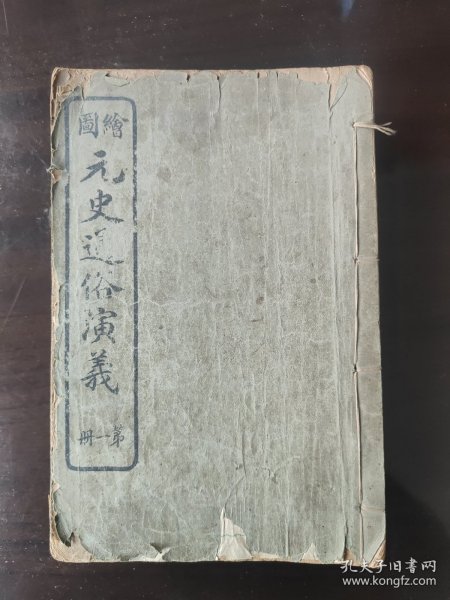 繪圖
元史通俗演義
第一册
孔夫子旧书网
www.kongfz.com